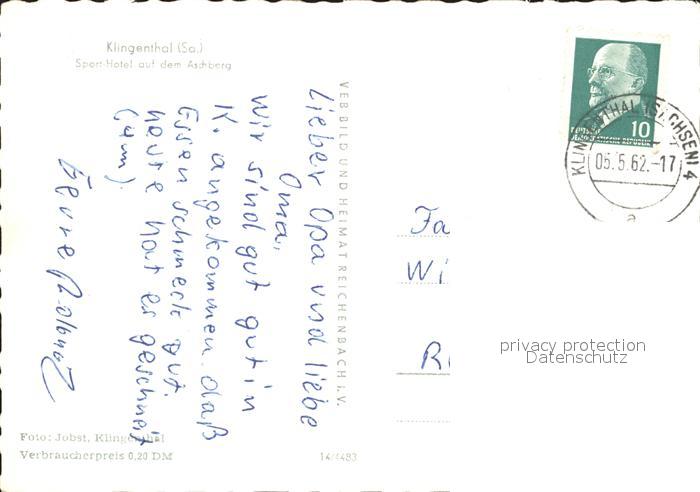 Klingenthal (Sa.)
Sport-Hotel auf dem Aschberg
Lieber Opa und liebe
Oma,
wir sind gut gut in
K. angekommen. daß
Essen schmeck gut.
heute hat es geschneit
(4m).
VEB BILD UND HEIMAT REICHENBACH i. V.
10
DEUTSCHE
DEMOKRATISCHE REPUBLIK
KLINGENTHAL (SACHSEN) 4
05.5.62.-17
a
Fa
Wi
R
privacy protection
Datenschutz
Foto: Jobst, Klingenthal
Verbraucherpreis 0,20 DM
14/4483